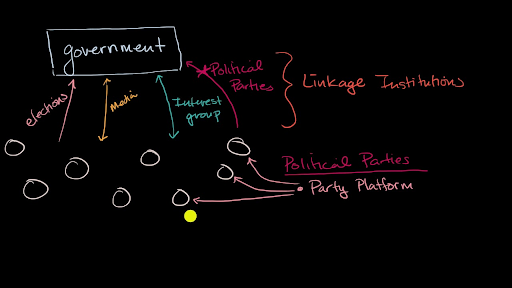 government
elections
Media
Interest
group
Political
Parties
Linkage Institutions
Political Parties
Party Platform